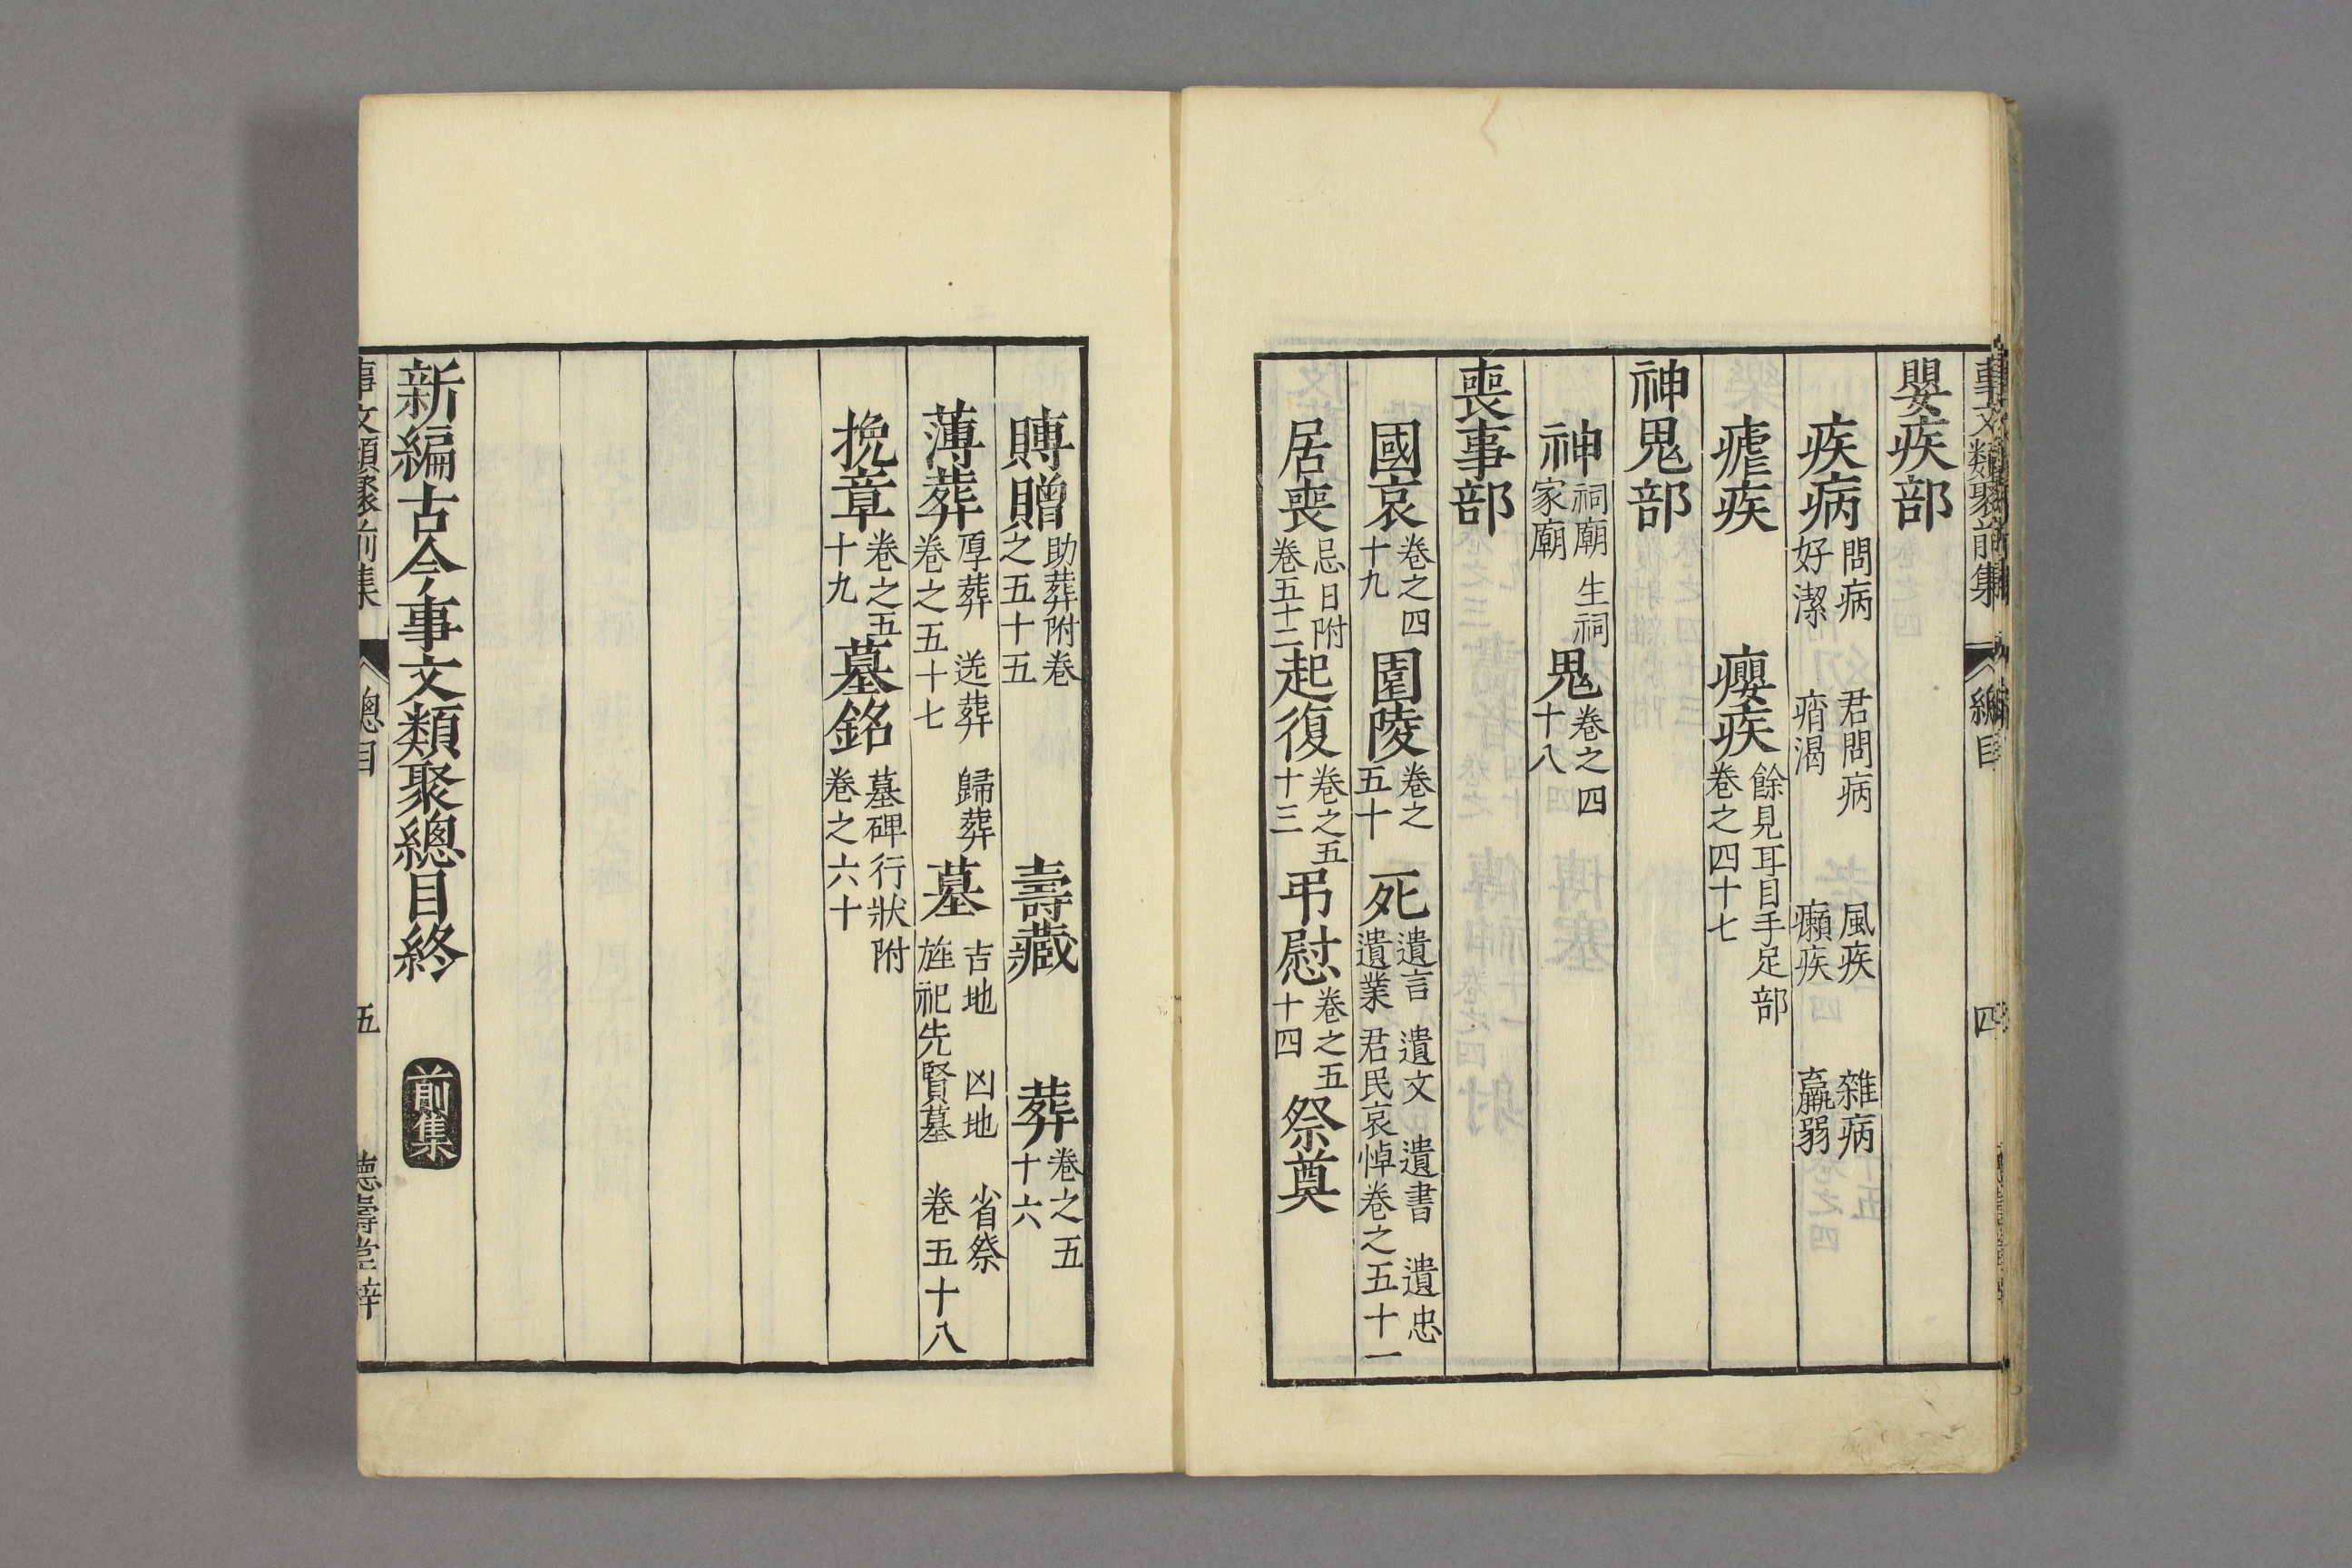 事文類聚前集 總目 四
嬰疾部
疾病 問病 君問病 風疾 雜病 好潔 痟渴 癩疾 羸弱
瘧疾 癭疾 餘見耳目手足部 卷之四十七
神鬼部
神 祠廟 生祠 家廟 鬼 卷之四十八
喪事部
國哀 卷之四十九 園陵 卷之五十 死 遺言 遺文 遺書 遺忠 遺業 君民哀悼 卷之五十一
居喪 忌日附 卷五十二 起復 卷之五十三 弔慰 卷之五十四 祭奠
賻贈 助葬附 卷之五十五 壽藏 葬 卷之五十六
薄葬 厚葬 送葬 歸葬 卷之五十七 墓 吉地 凶地 省祭 旌祀先賢墓 卷五十八
挽章 卷之五十九 墓銘 墓碑行狀附 卷之六十
新編古今事文類聚總目終 前集
事文類聚前集 總目 五 德壽堂梓